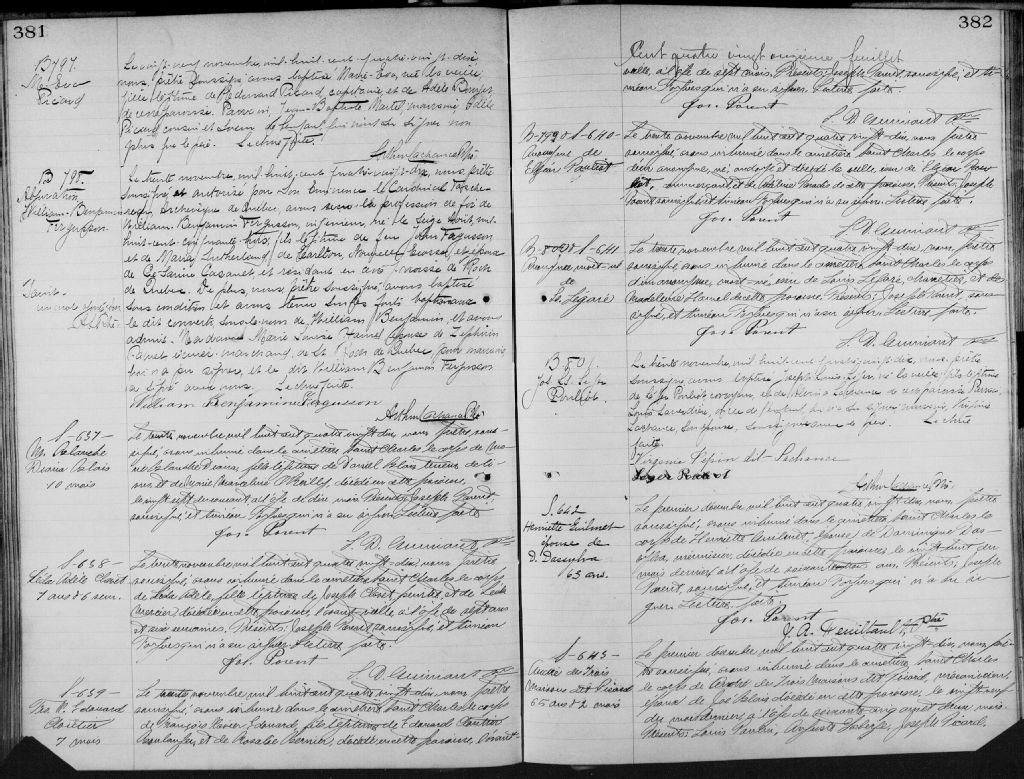 381
B 797.
M. Eva
Picard
Le vingt-neuf novembre, mil-huit-cent-quatre-vingt-dix,
nous prêtre soussigné avons baptisé Marie-Eva, née la veille,
fille légitime de Edouard Picard, capitaine et de Adèle
de cette paroisse. Parrain, Jean-Baptiste marraine Adèle
Picard cousin et de l'enfant, qui ont signé non
plus que le père. Lecture faite.
Arthur Lachance Ptre
B 798.
Abjuration
William-Benjamin
Ferguson.
Le trente novembre, mil-huit-cent-quatre-vingt-dix, nous prêtre
soussigné, et autorisé par Son Eminence le Cardinal Tasche-
reau, Archevêque de Québec, avons reçu la profession de foi de
William Benjamin Ferguson, ingénieur, né le seize Août, mil
huit-cent-cinquante-trois, fils légitime de feu John Ferguson
et de Maria Sutherland, de Carlton, Nouvelle Ecosse, et époux
de Césarine Casanet et résidant en cette paroisse de St Roch
de Québec. De plus, nous prêtre soussigné, avons baptisé
sous condition et avons tenu sur les fonts baptismaux
le dit converti sous le nom de William Benjamin, et avons
admis Madame Marie Louise épouse de Zéphirin
marchand, de St Roch de Québec pour marraine
qui n'a pu signer, et le dit William Benjamin Ferguson
a signé avec nous. Lecture faite.
William Benjamin Ferguson
Arthur Lachance Ptre
S-637
M. Blanche
Diana Valois
10 mois
Le trente novembre mil huit cent quatre vingt-dix, nous prêtre, sous-
signé, avons inhumé dans le cimetière Saint Charles le corps de Ma-
rie Blanche Diana, fille légitime de Daniel Valois, de li-
vres et de Marie Marceline Reilly, décédée en cette paroisse,
le vingt-huit du courant à l'âge de dix mois. Présents, Joseph Parent,
soussigné, et Siméon qui n'a su signer. Lecture faite.
Jos. Parent
F. D. Guimont Ptre
S-638-
Léda Adèle Cloret
7 ans & 6 sem.
Le trente novembre mil huit cent quatre vingt-dix, nous prêtre
soussigné, avons inhumé dans le cimetière Saint Charles le corps
de Léda Adèle, fille légitime de Joseph Cloret peintre, et de Léda
Mercier décédée en cette paroisse l'avant veille à l'âge de sept ans
et six semaines. Présents, Joseph Parent soussigné, et Siméon
qui n'a su signer. Lecture faite.
Jos. Parent
F. D. Guimont Ptre
S-639-
Frs. X. Edouard
Cloutier
7 mois
Le trente novembre mil huit cent quatre vingt-dix, nous prêtre
soussigné, avons inhumé dans le cimetière Saint Charles le corps
de François Xavier Edouard, fils légitime de Edouard Cloutier
boulanger, et de Rosalie Bernier, décédé en cette paroisse, l'avant-
382
Cent quatre vingt onzième feuillet
veille, à l'âge de sept mois. Présents, Joseph Parent, soussigné, et Si-
méon qui n'a su signer. Lecture faite.
Jos. Parent
F. D. Guimont Ptre
B-799 & S-640-
Anonyme de
Elzéar Pouliot
Le trente novembre mil huit cent quatre vingt dix, nous prêtre
soussigné, avons inhumé dans le cimetière Saint Charles le corps
d'un anonyme, né, ondoyé et décédé la veille, issu de Elzéar Pou-
liot, commerçant et de Paradis de cette paroisse, Présents, Joseph
Parent soussigné et Siméon qui n'a su signer. Lecture faite.
Jos. Parent
F. D. Guimont Ptre
B-800 & S-641
Anonyme mort-né
de
Ls. Légaré
Le trente novembre mil huit cent quatre vingt-dix, nous prêtre
soussigné, avons inhumé dans le cimetière Saint Charles le corps
d'un anonyme, mort-né, issu de Louis Légaré, charretier, et de
Madeleine Hamel de cette paroisse, Présents, Joseph Parent, sous-
signé, et Siméon qui n'a su signer. Lecture faite.
Jos. Parent
F. D. Guimont Ptre
B 801.
Jos. Ls.
Pouliot.
Le trente novembre, mil-huit-cent-quatre-vingt-dix, nous, prêtre
soussigné avons baptisé Joseph Louis né la veille, fils légitime
de Pouliot, et de Lachance de cette paroisse. Parrain
Louis marraine, Virginie
Lachance, soussignés avec le père. Lecture
faite.
Virginie Pepin dit-Lachance
Arthur Lachance Ptre.
S. 642
Henriette Guilmet
épouse de
D. Dasylva
63 ans.
Le premier décembre mil huit cent quatre vingt-dix, nous prêtre
soussigné, avons inhumé dans le cimetière Saint Charles le
corps de Henriette Guilmet, épouse de Dominique Das-
ylva, menuisier, décédée en cette paroisse le vingt-huit du
mois dernier à l'âge de soixante trois ans. Présents, Joseph
Parent, soussigné, et Siméon qui n'a su si-
gner. Lecture faite.
Jos. Parent
J. A. Feuiltault Ptre
S-643-
André des Trois
Maisons dit Picard
65 ans & 2 mois
Le premier décembre mil huit cent quatre vingt-dix, nous prê-
tre soussigné, avons inhumé dans le cimetière Saint Charles
le corps de André des Trois Maisons dit Picard, mécanicien,
époux de Zoé Valois décédé en cette paroisse, le vingt-neuf
du mois dernier, à l'âge de soixante cinq ans et deux mois.
Présents Louis Paulin, Auguste Joseph Picard,